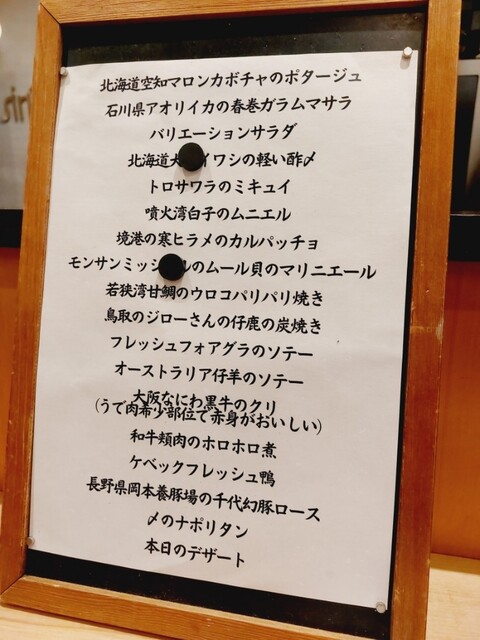 北海道空知マロンカボチャのポタージュ
石川県アオリイカの春巻ガラムマサラ
バリエーションサラダ
北海道大 イワシの軽い酢〆
トロサワラのミキュイ
噴火湾白子のムニエル
境港の寒ヒラメのカルパッチョ
モンサンミッシ ルのムール貝のマリニエール
若狭湾甘鯛のウロコパリパリ焼き
鳥取のジローさんの仔鹿の炭焼き
フレッシュフォアグラのソテー
オーストラリア仔羊のソテー
大阪なにわ黒牛のクリ
(うで肉希少部位で赤身がおいしい)
和牛頬肉のホロホロ煮
ケベックフレッシュ鴨
長野県岡本養豚場の千代幻豚ロース
〆のナポリタン
本日のデザート